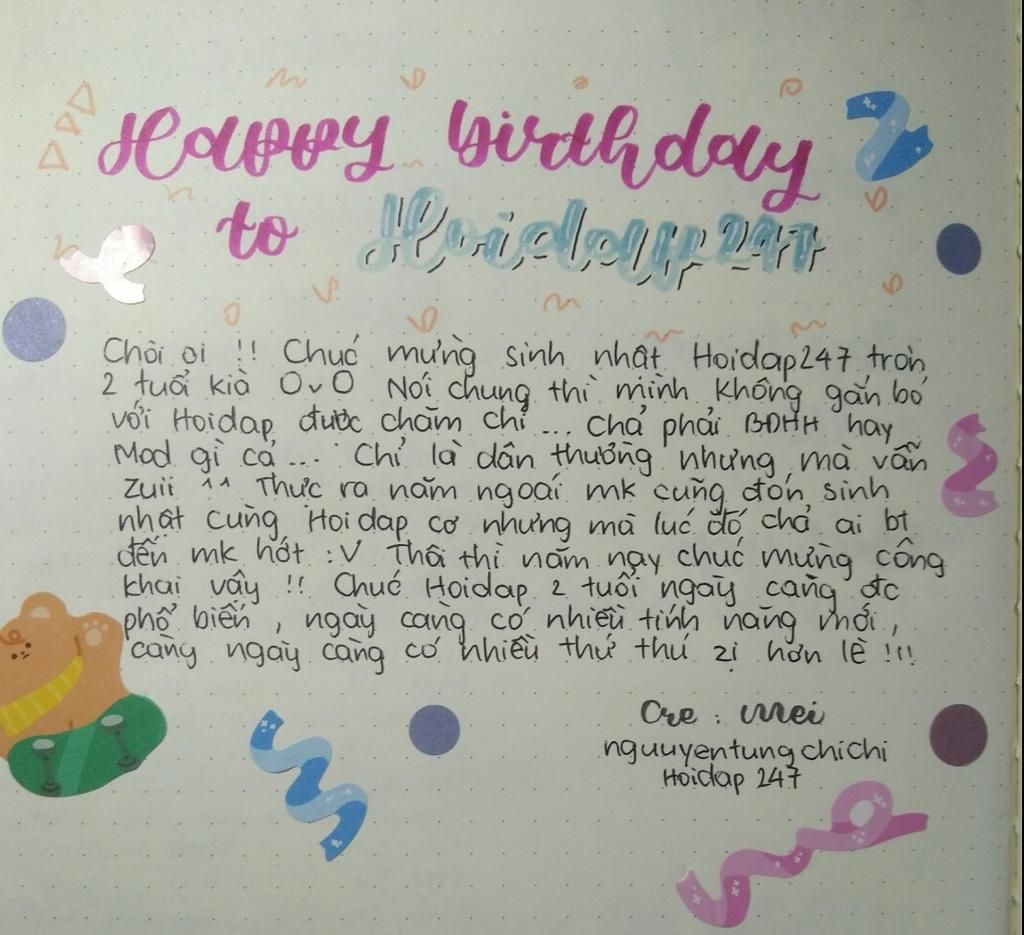 Happy birthday
to Hoidap247
Chời ơi !! Chúc mừng sinh nhật Hoidap247 tròn
2 tuổi kìa OvO Nói chung thì mình không gắn bó
với Hoidap được chăm chỉ ... Chả phải BĐHH hay
Mod gì cả ... Chỉ là dân thường nhưng mà vẫn
Zuii ^^ Thực ra năm ngoái mk cũng đón sinh
nhật cùng Hoidap cơ nhưng mà lúc đó chả ai bt
đến mk hớt :V Thôi thì năm nay chúc mừng công
khai vậy !! Chúc Hoidap 2 tuổi ngày càng đc
phổ biến , ngày càng có nhiều tính năng mới ,
càng ngày càng có nhiều thứ thú zị hơn lè !!!
Cre : Mei
nguuyentungchichi
Hoidap 247